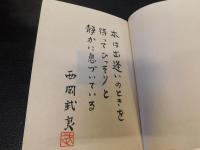 本は出逢いのときを
待ってひっそりと
静かに息づいている
西岡武良